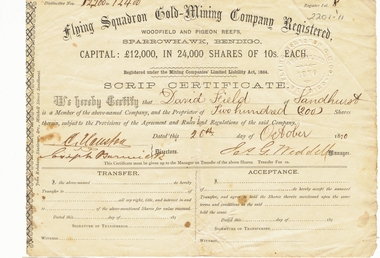 Flying Squadron Gold-Mining Company Registered,
WOODFIELD AND PIGEON REEFS,
SPARROWHAWK, BENDIGO.
CAPITAL: £12,000, IN 24,000 SHARES OF 10s. EACH.
Registered under the Mining Companies' Limited Liability Act, 1864.
SCRIP CERTIFICATE.
We hereby Certify that David Field of Sandhurst
is a Member of the above-named Company, and the Proprietor of Five hundred (500) Shares
therein, subject to the Provisions of the Agreement and Rules and Regulations of the said Company.
Dated this 20th day of October 187
Directors.
Manager.
This Certificate must be given up to the Manager on Transfer of the above Shares.
TRANSFER.
I, the above-named
do hereby transfer to
all my right, title, and interest in and
to the above-mentioned Shares for value received.
Dated this day of 187
SIGNATURE OF TRANSFEROR
WITNESS
ACCEPTANCE.
I, of
do hereby accept the annexed
Transfer, and agree to hold the Shares therein mentioned upon the same
conditions
held the same.
Dated this day of 187
SIGNATURE OF TRANSFEREE
WITNESS